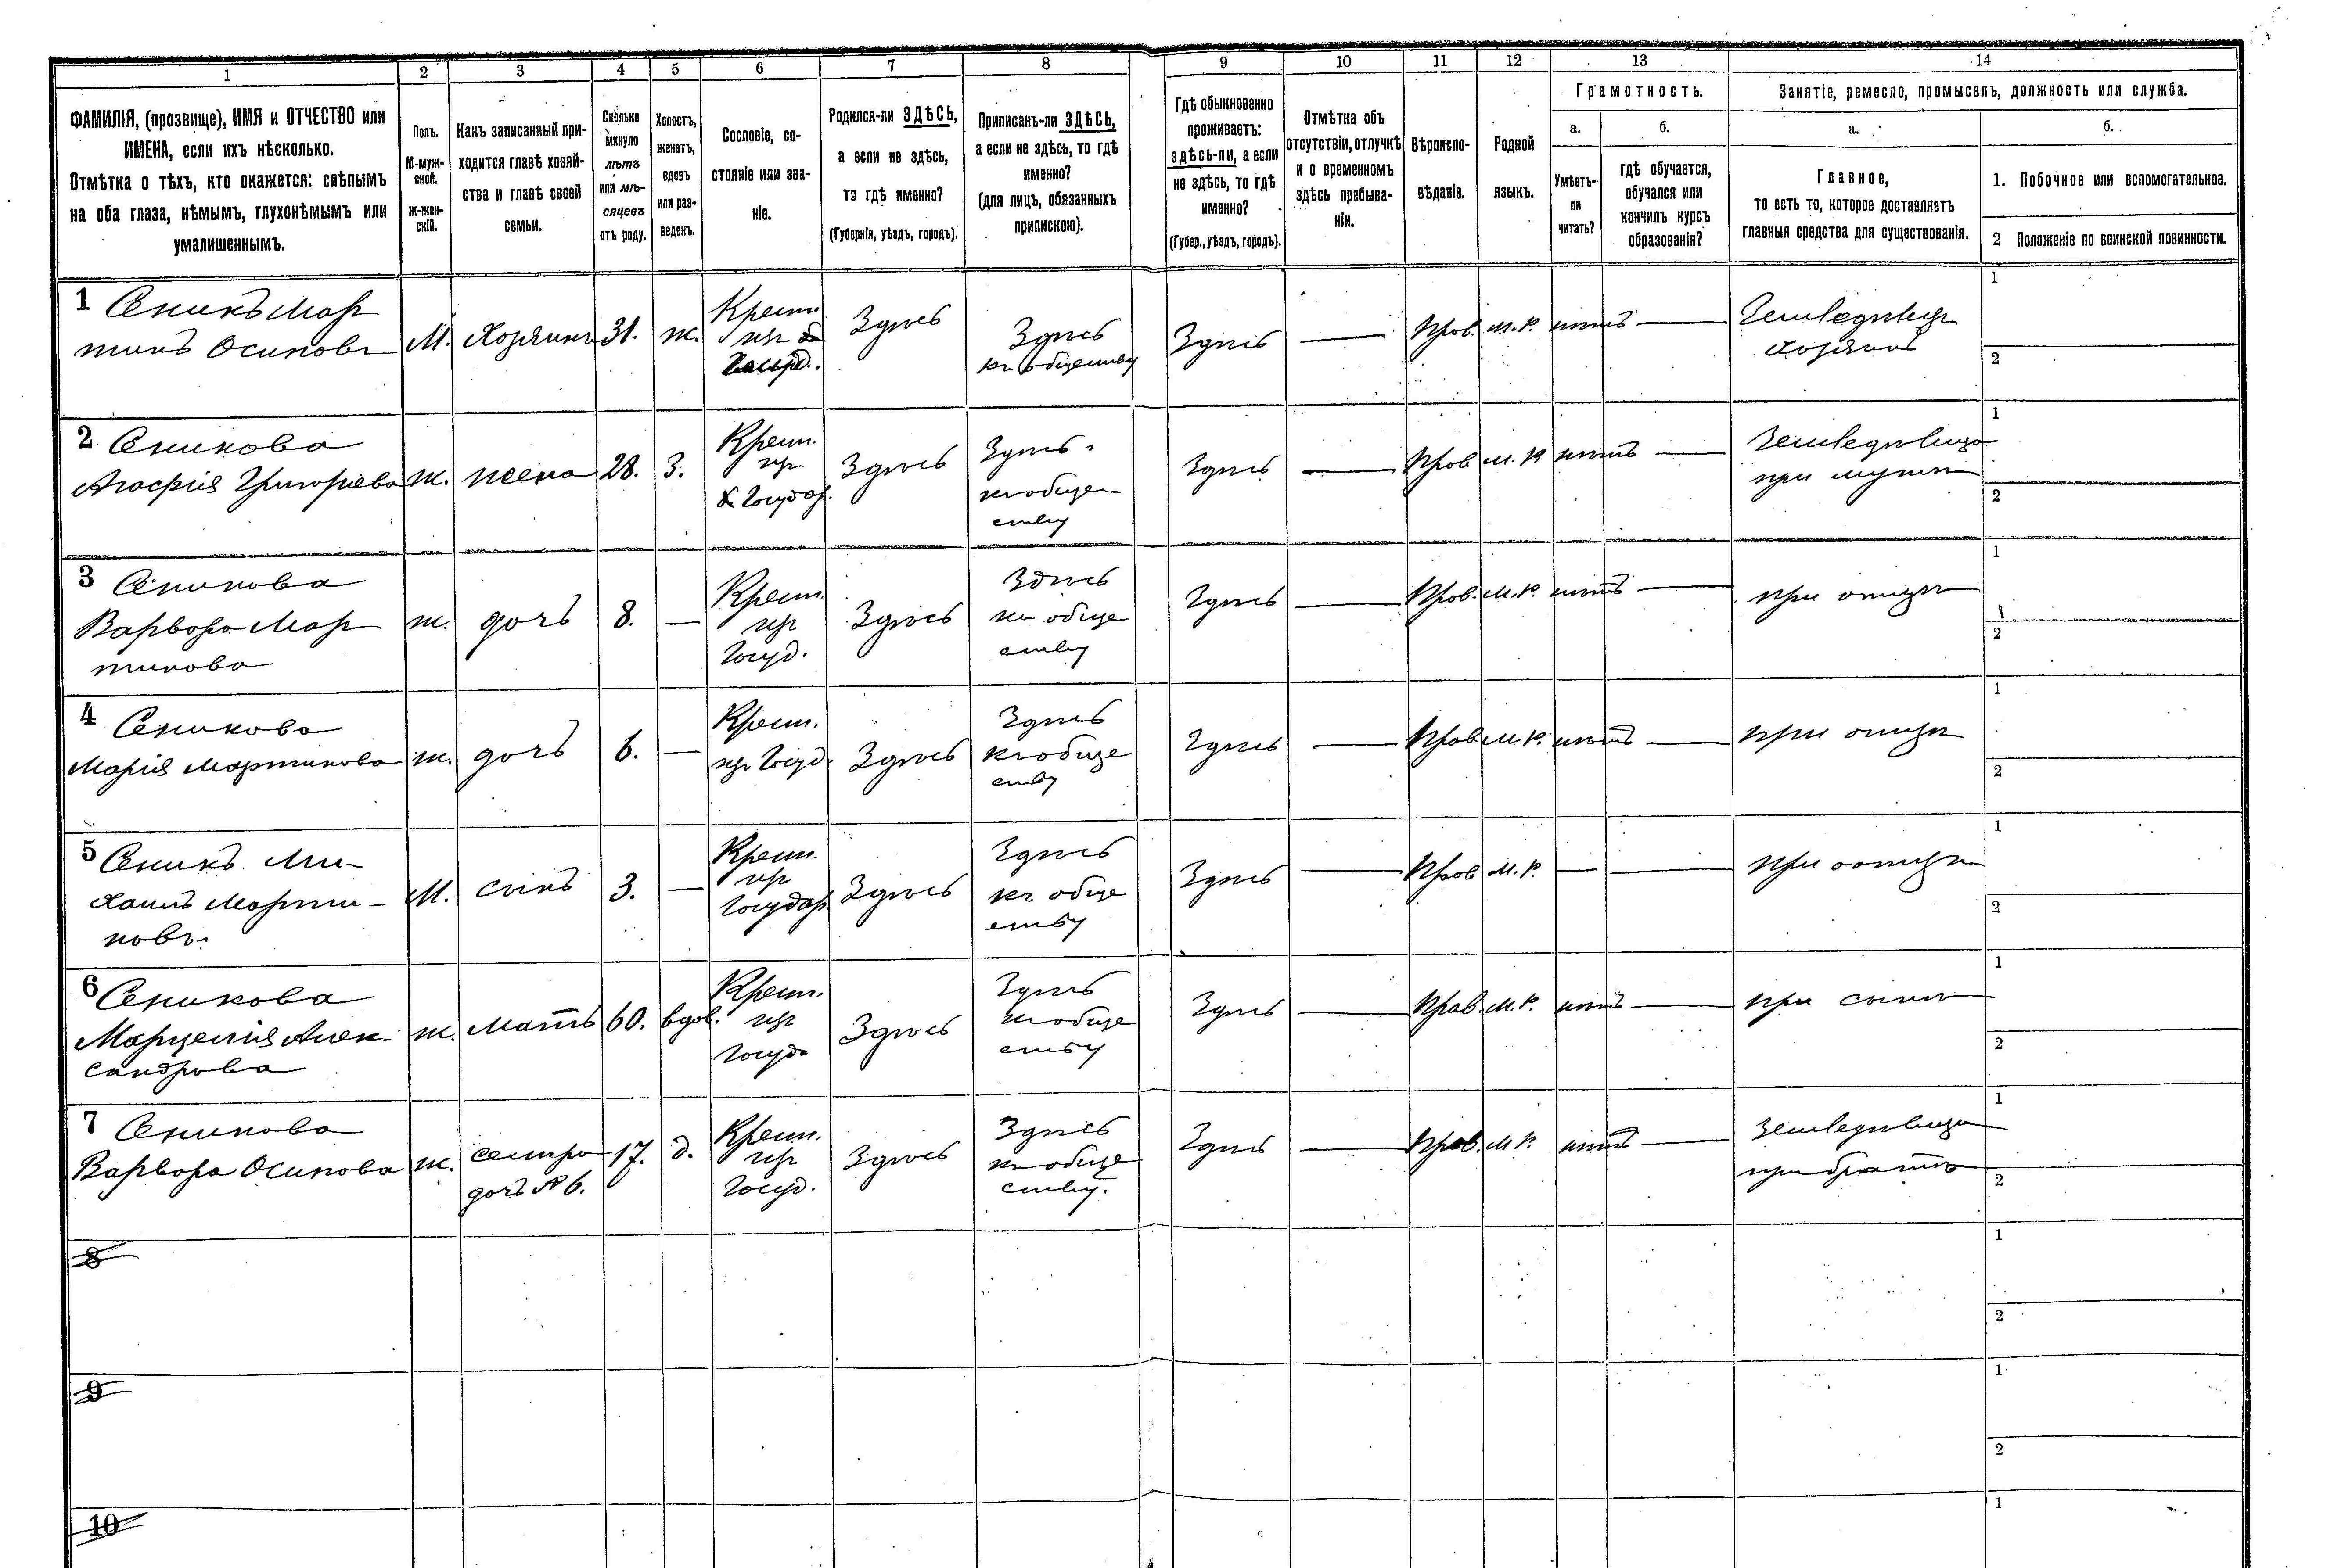 1 2 3 4 5 6 7 8 9 10 11 12 13 14
ФАМИЛІЯ, (прозвище), ИМЯ и ОТЧЕСТВО или
ИМЕНА, если ихъ нѣсколько.
Отмѣтка о тѣхъ, кто окажется: слѣпымъ
на оба глаза, нѣмымъ, глухонѣмымъ или
умалишеннымъ.
Полъ.
М-муж-
ской.
Ж-жен-
скій.
Какъ записанный при-
ходится главѣ хозяй-
ства и главѣ своей
семьи.
Сколько
минуло
лѣтъ
или мѣ-
сяцевъ
отъ роду.
Холостъ,
женатъ,
вдовъ
или раз-
веденъ.
Сословіе, со-
стояніе или зва-
ніе.
Родился-ли ЗДѢСЬ,
а если не здѣсь,
то гдѣ именно?
(Губернія, уѣздъ, городъ).
Приписанъ-ли ЗДѢСЬ,
а если не здѣсь, то гдѣ
именно?
(для лицъ, обязанныхъ
припискою).
Гдѣ обыкновенно
проживаетъ:
здѣсь-ли, а если
не здѣсь, то гдѣ
именно?
(Губер., уѣздъ, городъ).
Отмѣтка объ
отсутствіи, отлучкѣ
и о временномъ
здѣсь пребыва-
ніи.
Вѣроиспо-
вѣданіе.
Родной
языкъ.
Грамотность.
а.
Умѣетъ-
ли
читать?
б.
гдѣ обучается,
обучался или
кончилъ курсъ
образованія?
Занятіе, ремесло, промыселъ, должность или служба.
а.
Главное,
то есть то, которое доставляетъ
главныя средства для существованія.
б.
1. Побочное или вспомогательное.
2 Положеніе по воинской повинности.
1 Сеникъ Мар
тинъ Осиповъ
М. Хозяинъ 31. ж.
Крест.
изъ
Здѣсь
Здѣсь
къ обществу
Здѣсь — Прав. М. Р. нѣтъ —
Земледѣлецъ
хозяинъ
1
2
2 Сеникова
Агафія Григоріева
ж. жена 28. З.
Крест.
изъ
Государ.
Здѣсь
Здѣсь
къ обще
ству
Здѣсь — Прав М. Р нѣтъ —
Земледѣлица
при мужѣ
1
2
3 Сеникова
Варвара Мар
тинова
ж. дочь 8. —
Крест.
изъ
Госуд.
Здѣсь
Здѣсь
къ обще
ству
Здѣсь — Прав. М. Р. нѣтъ —
при отцѣ
1
2
4 Сеникова
Марія Мартинова
ж. дочь 6. —
Крест.
изъ Госуд.
Здѣсь
Здѣсь
къ обще
ству
Здѣсь — Прав М. Р. нѣтъ —
при отцѣ
1
2
5 Сеникъ Ми-
хаилъ Марти-
новъ.
М. сынъ 3. —
Крест.
изъ
Государ
Здѣсь
Здѣсь
къ обще
ству
Здѣсь — Прав М. Р. — —
при отцѣ
1
2
6 Сеникова
Марцелія Алек-
сандрова
ж. мать 60. вдов.
Крест.
изъ
Госуд
Здѣсь
Здѣсь
къ обще
ству
Здѣсь — Прав. М. Р. нѣтъ —
при сынѣ
1
2
7 Сеникова
Варвара Осипова
ж.
сестра
дочь № 6.
17. д.
Крест.
изъ
Госуд.
Здѣсь
Здѣсь
къ обще
ству.
Здѣсь — Прав. М. Р. нѣтъ —
Земледѣлица
при братѣ
1
2
8
1
2
9
1
2
10
1